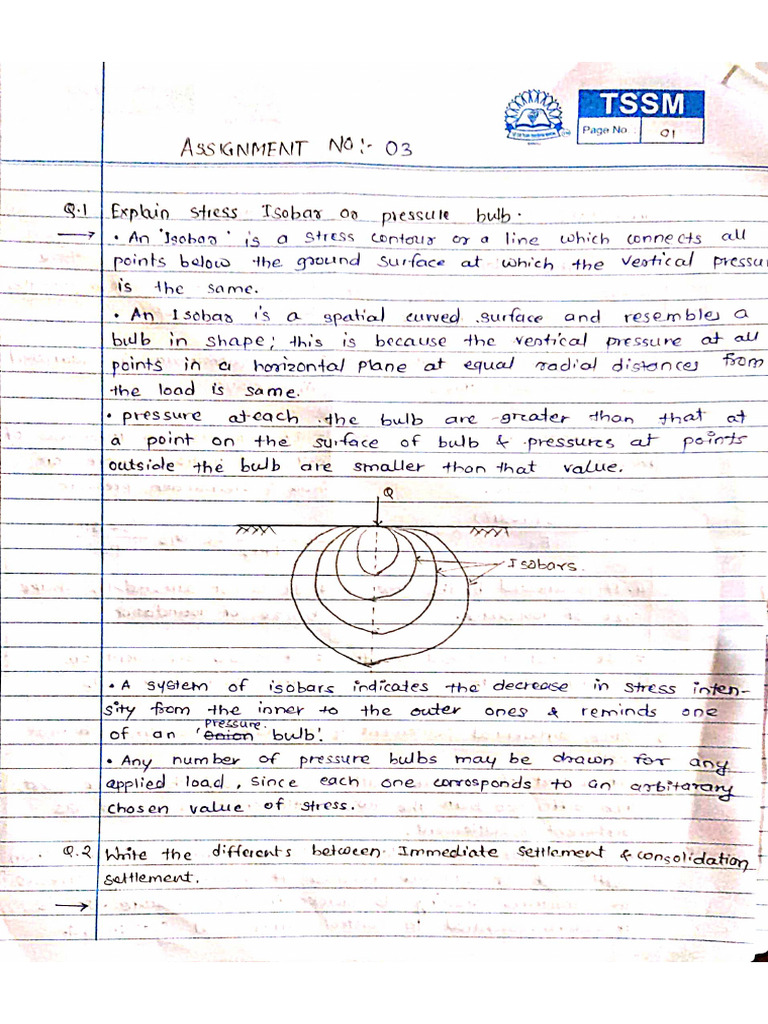 TSSM
Page No. 01
ASSIGNMENT NO:- 03
Q.1 Explain stress Isobar or pressure bulb.
→ • An 'Isobar' is a stress contour or a line which connects all
points below the ground surface at which the vertical pressu
is the same.
• An Isobar is a spatial curved surface and resembles a
bulb in shape; this is because the vertical pressure at all
points in a horizontal plane at equal radial distances from
the load is same.
• pressure at each the bulb are greater than that at
a point on the surface of bulb & pressures at points
outside the bulb are smaller than that value.
Q
Isobars.
• A system of isobars indicates the decrease in stress inten-
sity from the inner to the outer ones & reminds one
pressure.
of an 'Onion bulb'.
• Any number of pressure bulbs may be drawn for any
applied load, since each one corrosponds to an arbitarary
chosen value of stress.
Q.2 Write the differents between Immediate settlement & consolidation
settlement.
→